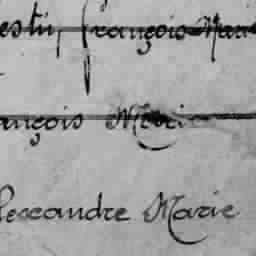 estu, françois Mari
ançois Marie
lexandre Marie